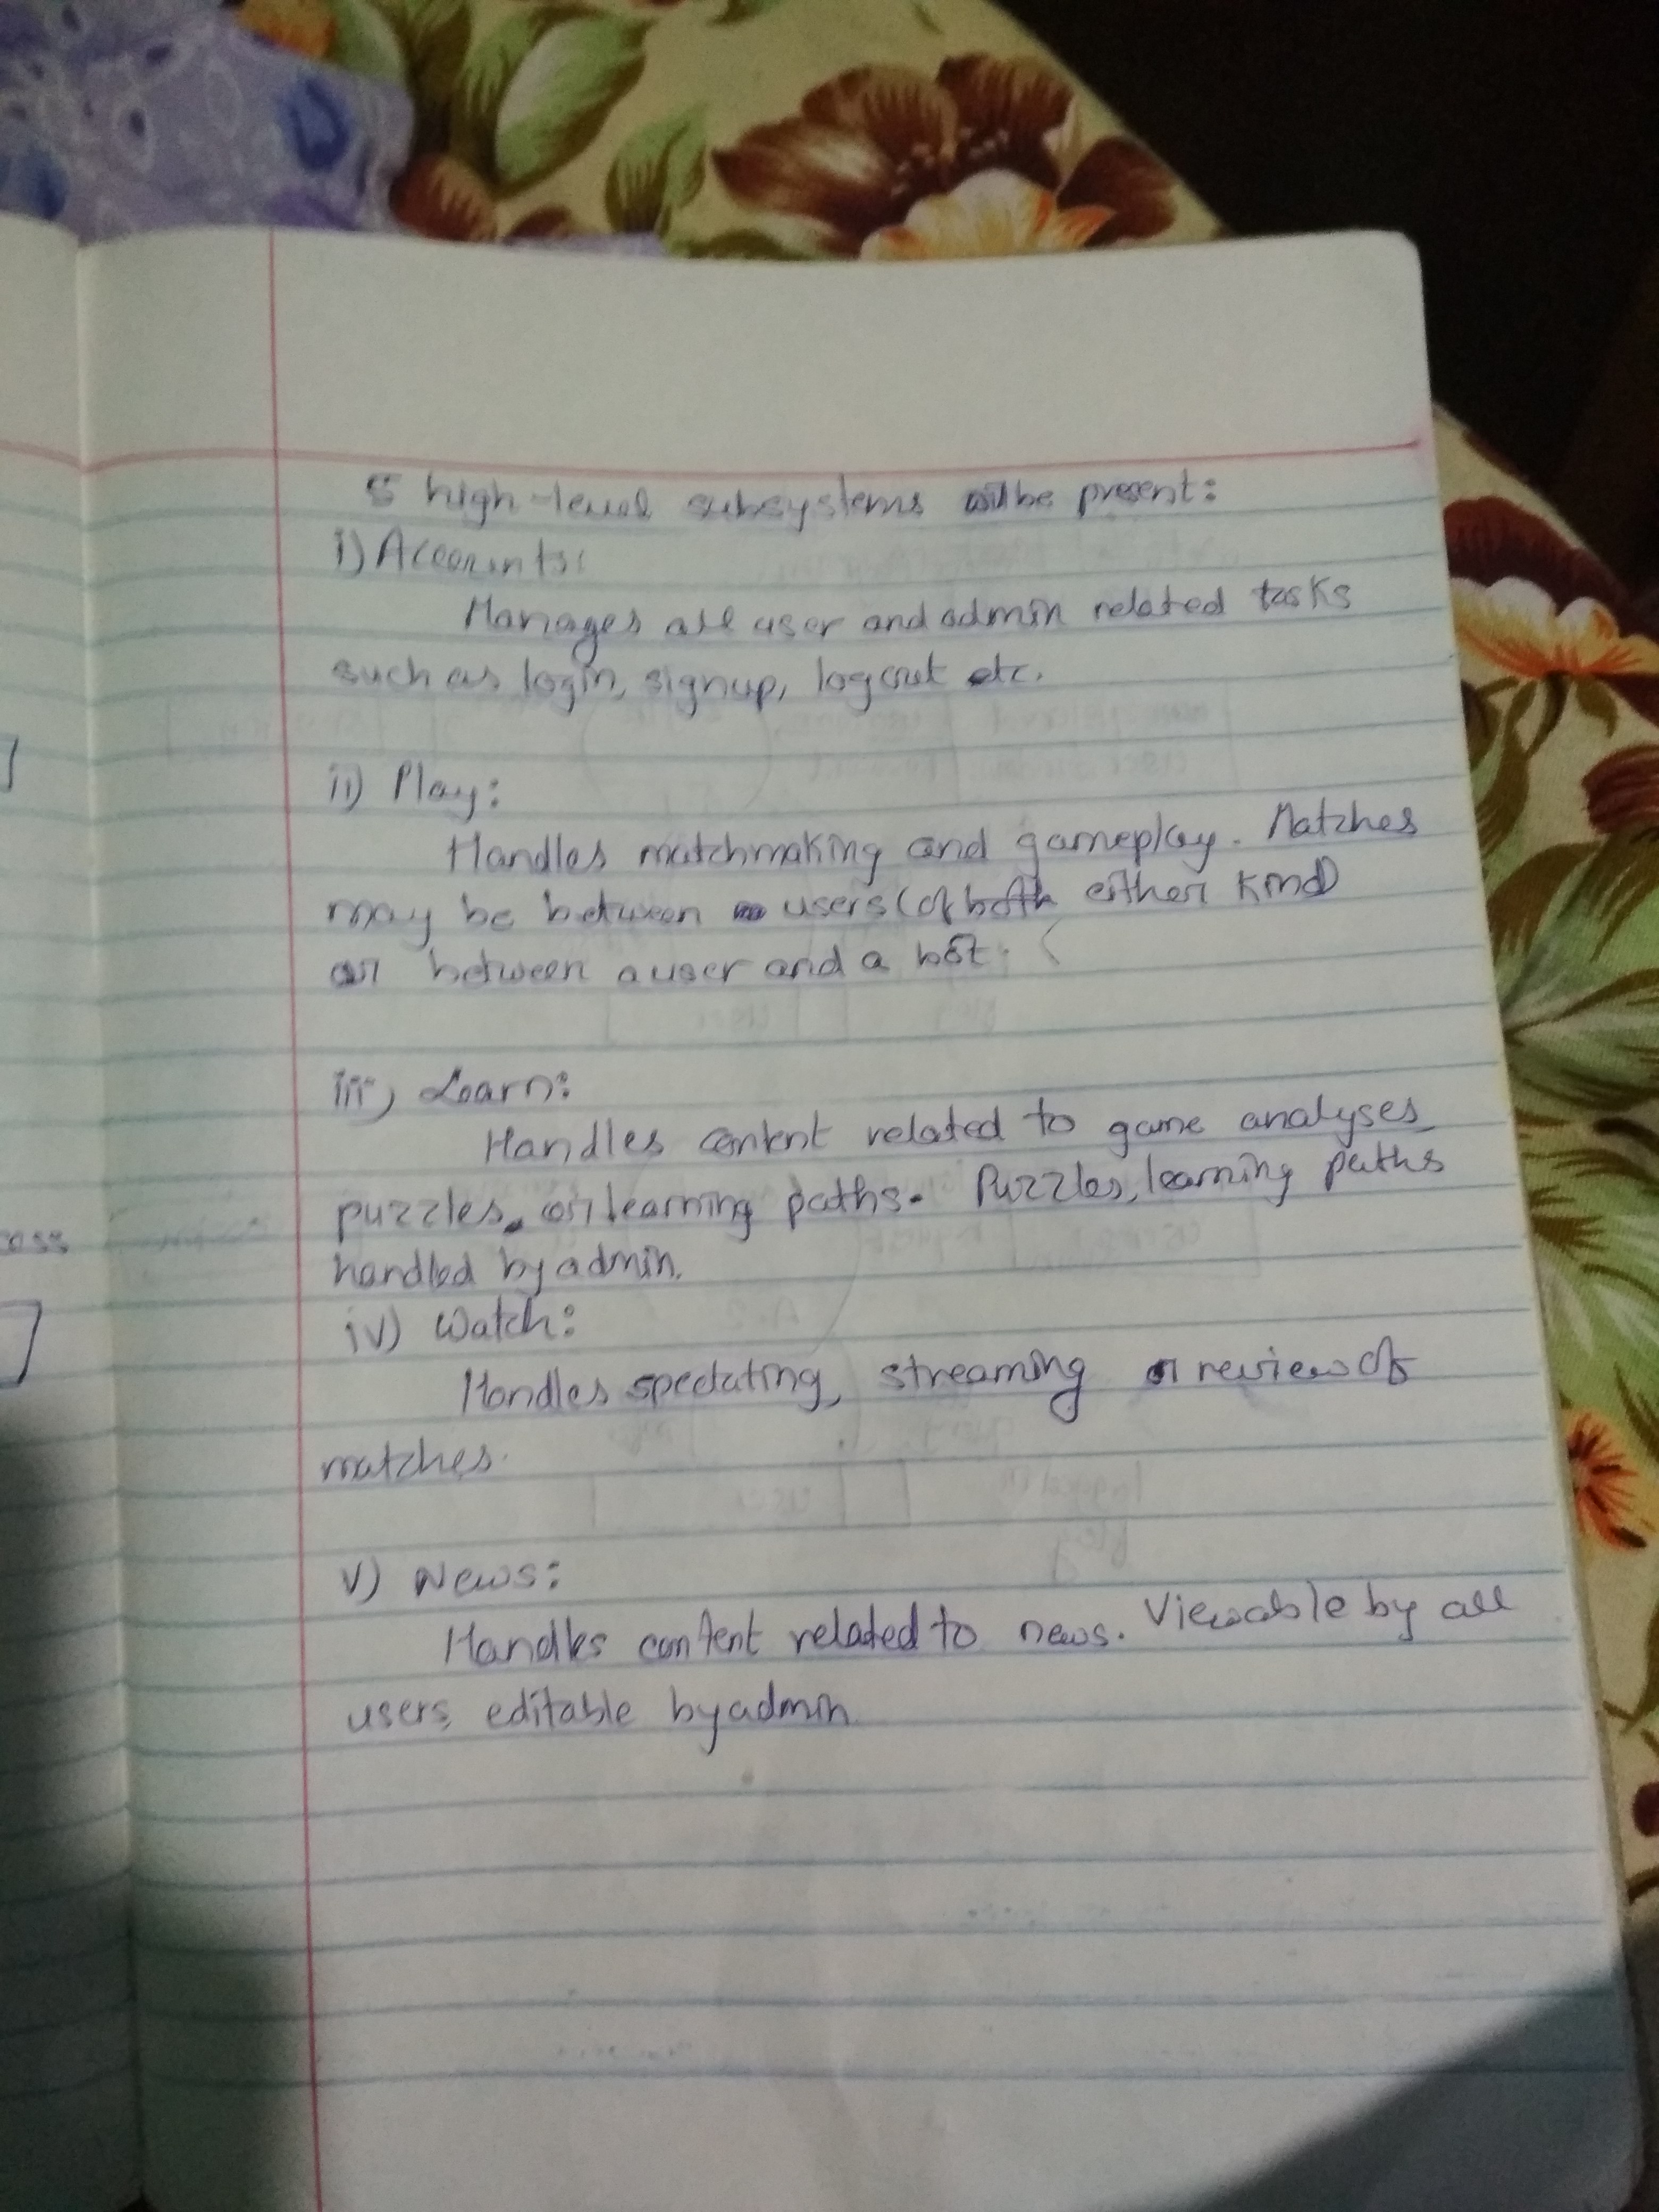 5 high-level subsystems will be present:
i) Accounts:
Manages all user and admin related tasks
such as login, signup, logout etc.
ii) Play:
Handles matchmaking and gameplay. Matches
may be between users (of both either kind)
or between a user and a bot.
iii) Learn:
Handles content related to game analyses,
puzzles, or learning paths. Puzzles, learning paths
handled by admin.
iv) Watch:
Handles spectating, streaming or review of
matches.
v) News:
Handles content related to news. Viewable by all
users, editable by admin